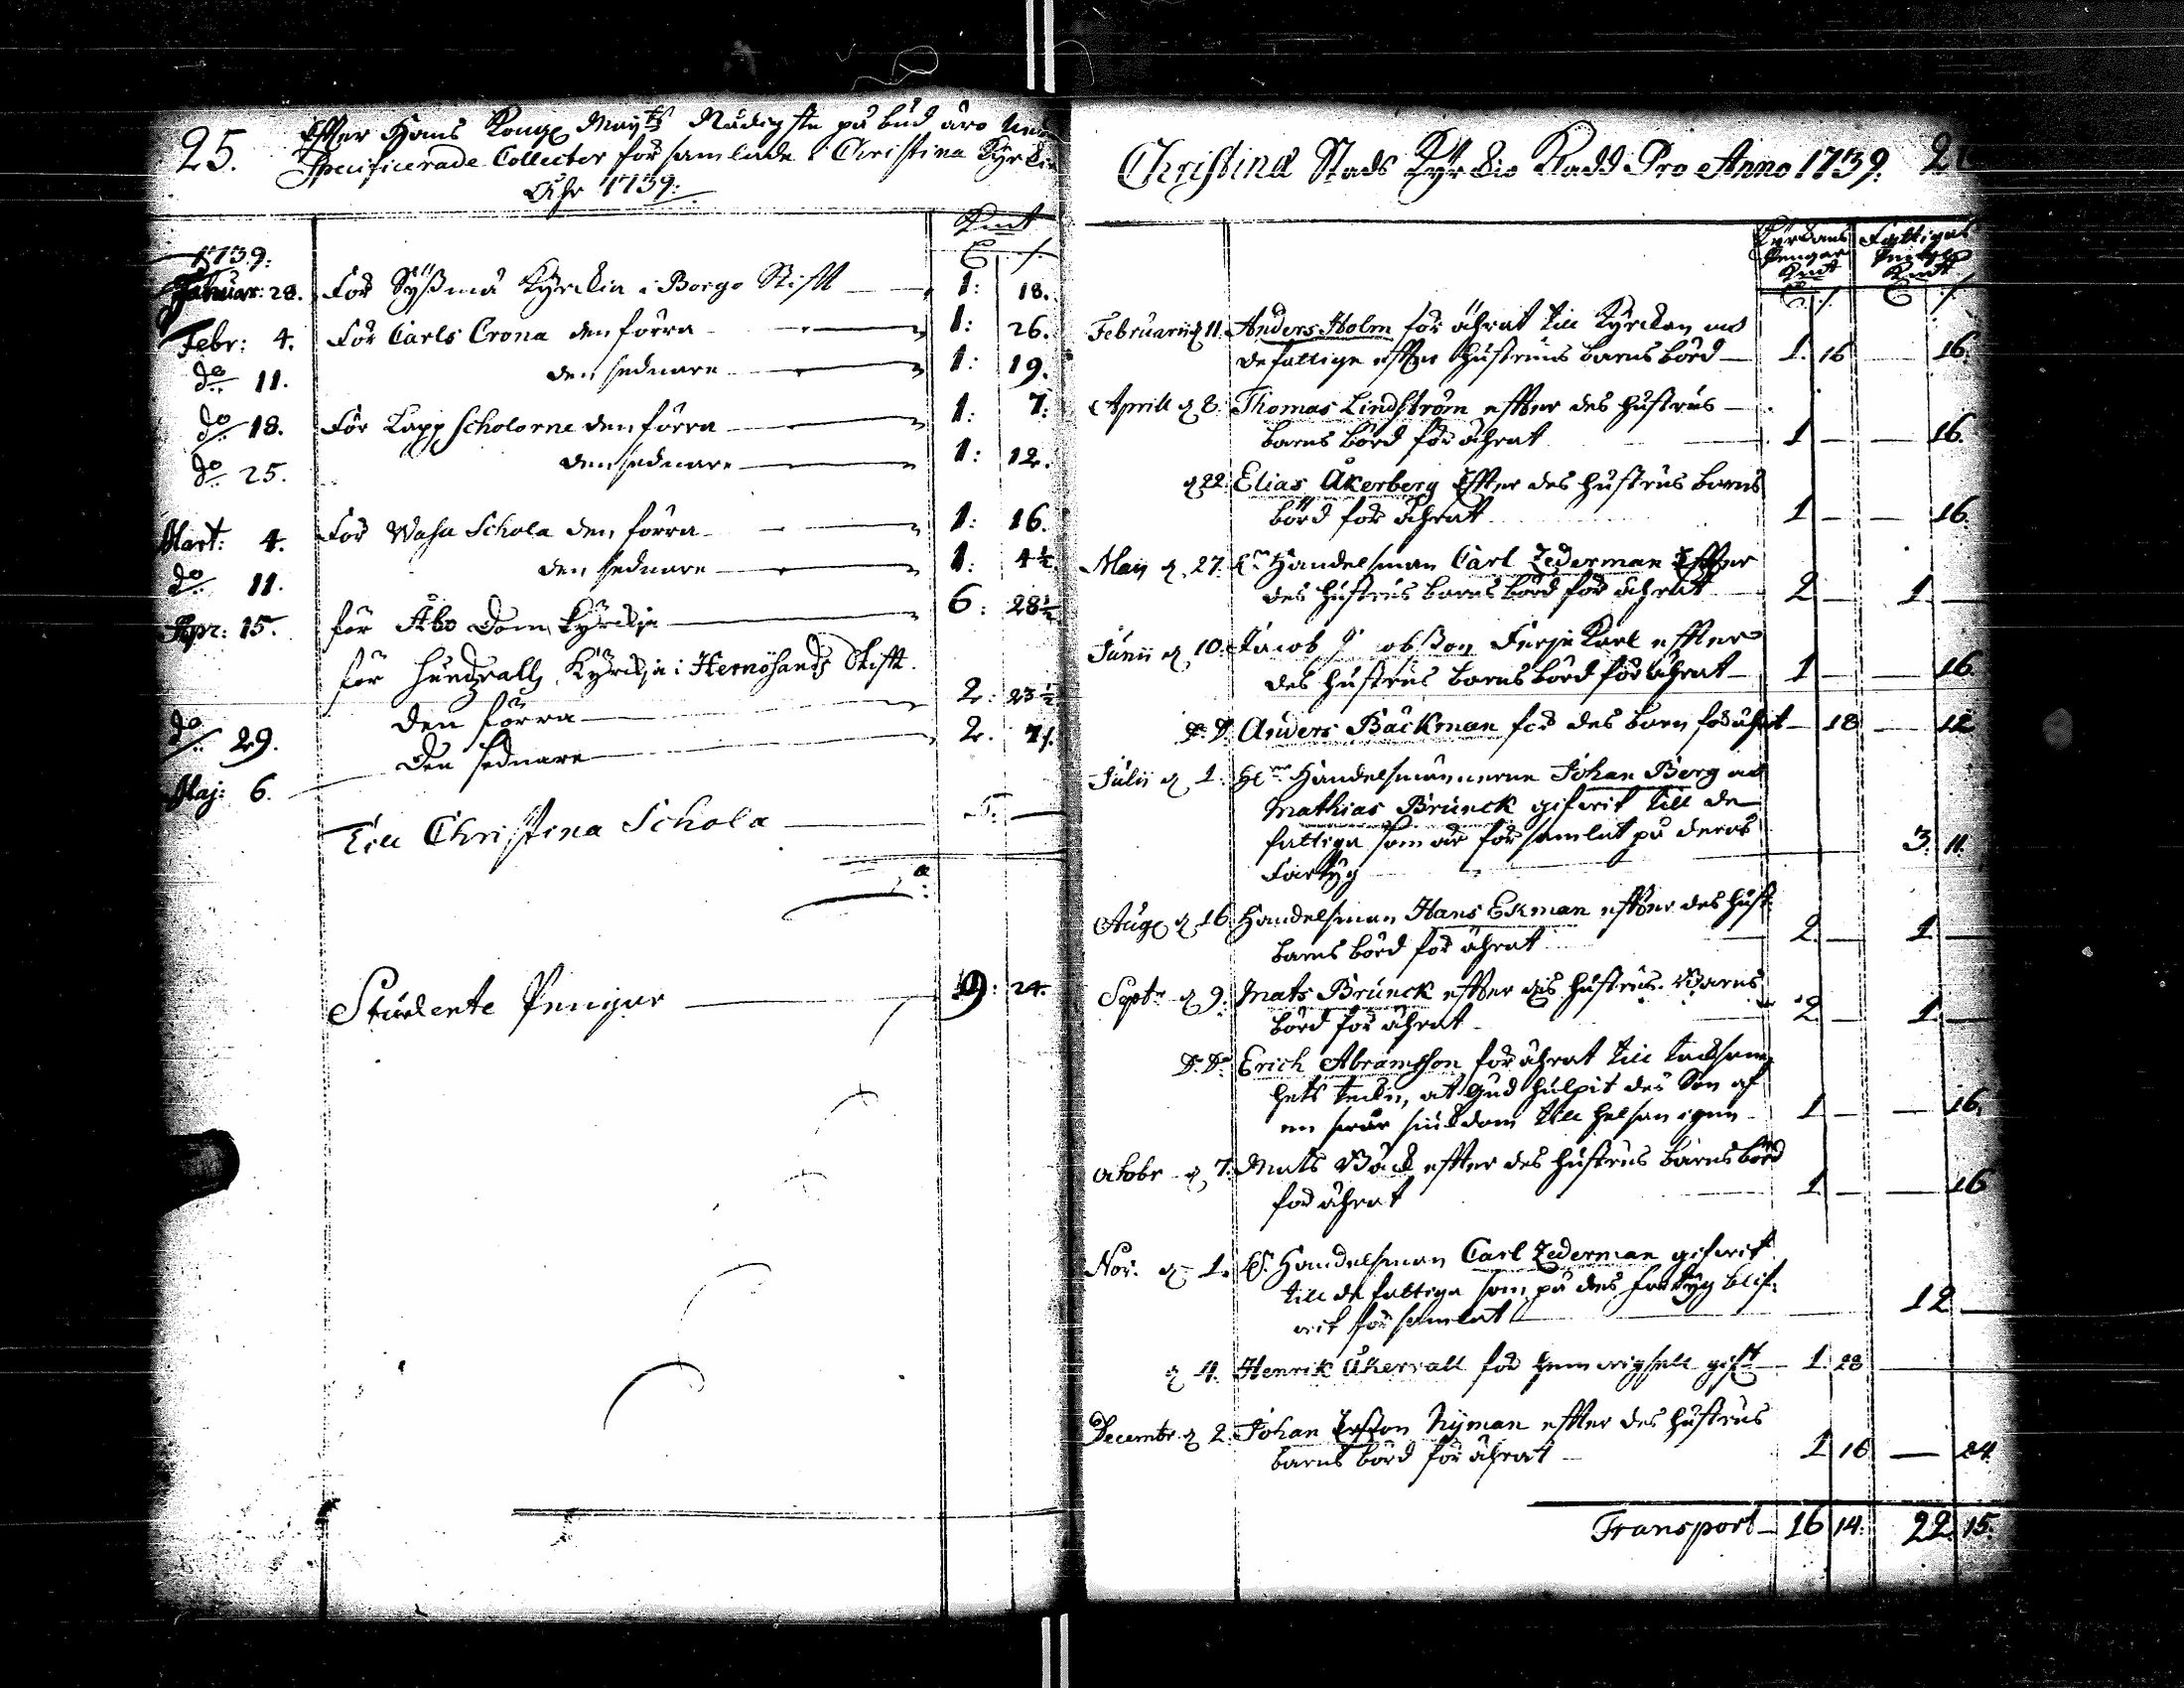 25. Efter Hans Kongl Mayttz Nådigste påbud äro
Specificerade Collecter församlade i Christina Kyrckia
Åhr 1739:
Kmt
1739:
Januar: 28. För Syßmä Kyrckia i Borgo Stift 1: 18.
Febr: 4. För Carls Crona den förra 1: 26.
do 11. den sednare 1: 19.
do 18. För Lapp Scholorne den förra 1: 7:
do 25. den sednare 1: 12.
Mart: 4. För Wasa Schola den förra 1: 16.
do 11. den sednare 1: 4½
Apr: 15. för Åbo Dom Kyrckja 6: 28½
för Kyrckja i Hernösands Stift.
do 29. den förra 2: 23½
Maj: 6. den sednare 2.
Till Christina Schola
Studente Pengar 9: 24.
Christinæ Stads Kyrckio Radd Pro Anno 1739.
Kyrckans Fattigas
Pengar
Kmt Kmt
Februarii d 11. Anders Holm förährat till Kyrckan och
de fattige efter hustruns barnsbörd 1. 16 — 16.
Aprill d 8. Thomas Lindström effter des hustrus
barnsbörd förährat 1 — — 16.
d 22. Elias Åkerberg Effter des hustrus barns
börd förährat 1 — — 16.
Maij d 27. Handelsman Carl Zederman Effter
des hustrus barnsbörd förährat 2 — 1. —
Junii d 10. Jacob Ferje Karl effter
des hustrus barnsbörd förährat 1 — — 16.
D. D. Anders Bäckman för des barn förährat — 18 — 12
Julii d 1. Handelsmännerne Johan Berg och
Mathias Brunck gifwit till de
fattiga som är församlat på deras
Fartyg 3. 11.
Aug d 16. Handelsman Hans Ekman effter des hust.
barnsbörd förährat 2. — 1. —
Septr d 9. Mats Brunck effter des hustrus Barns
börd förährat 2. — 1. —
D. Do Erich Abramsson förährat till tacksam
hets teckn, at Gud hulpit des Son af
en swår siukdom till helsan igen 1 — — 16.
Octobr d 7. Mats Bäck effter des hustrus barnsbörd
förährat 1. — — 16
Nov. d 1. Handelsman Carl Zederman gifwit
till de fattiga som på des fartyg blif-
wit församlat 12 —
d 4. Henrik Åkerwall för hemwigsell gift 1 28
Decembr d 2. Johan Ersson Nyman effter des hustrus
barnsbörd förährat 1 16 — 24.
Transport 16 14: 22. 15.